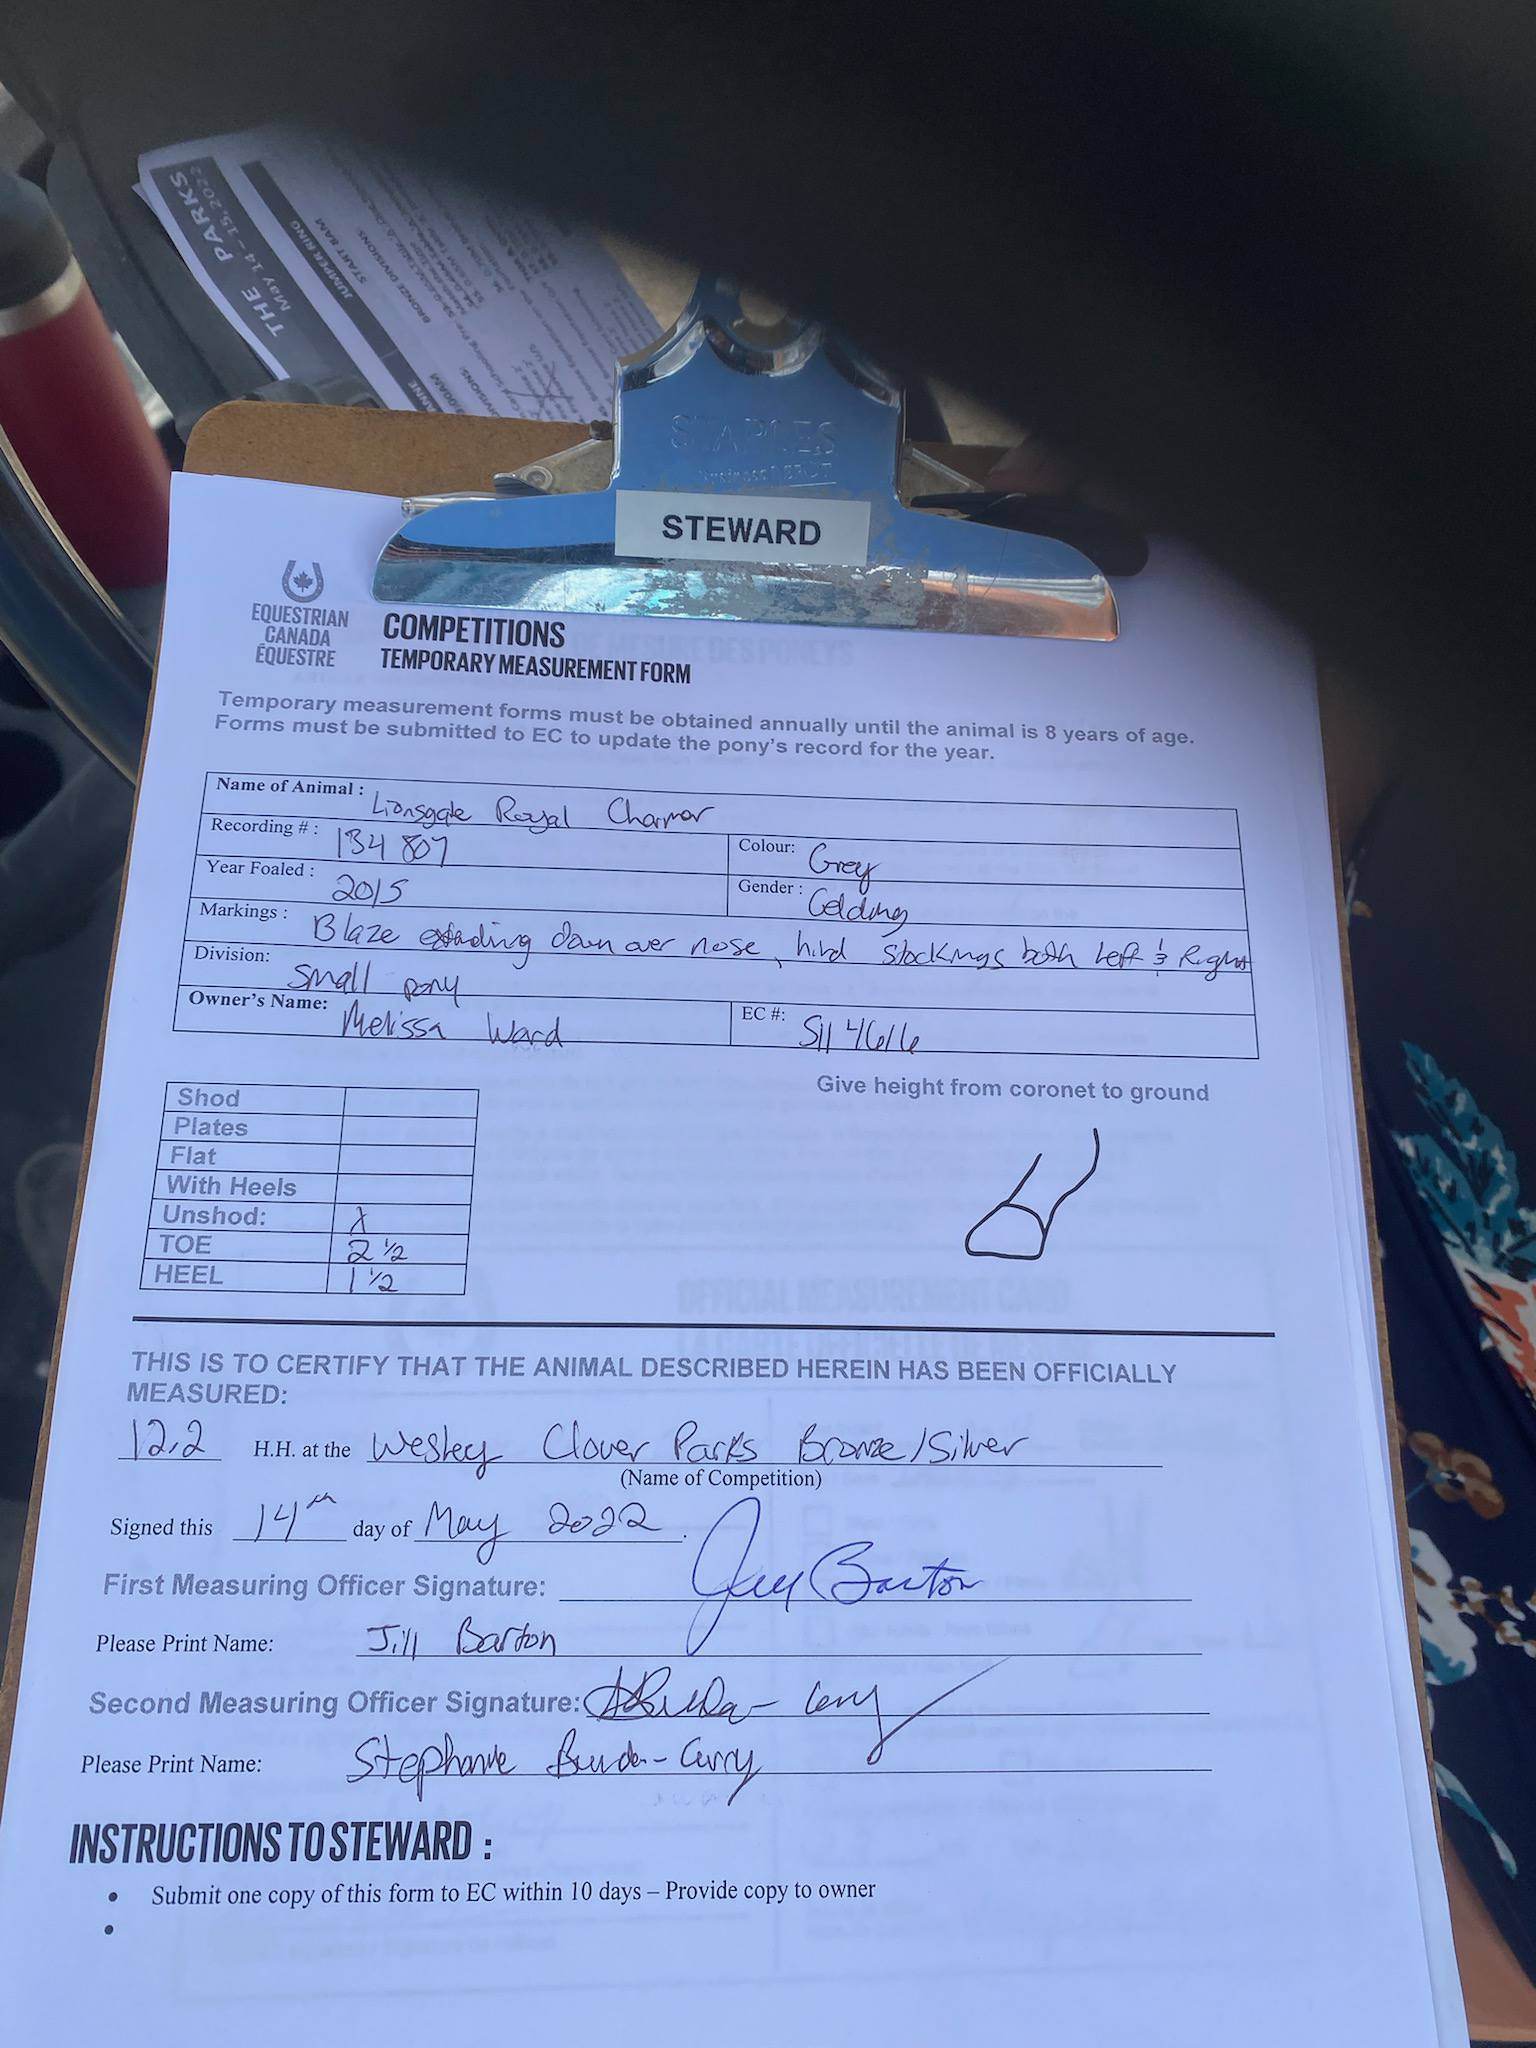 THE PARKS
May 14 – 15, 2022
JUMPER RING
START 8AM
BRONZE DIVISIONS:
STAPLES
STEWARD
EQUESTRIAN
CANADA
ÉQUESTRE
COMPETITIONS
TEMPORARY MEASUREMENT FORM
Temporary measurement forms must be obtained annually until the animal is 8 years of age.
Forms must be submitted to EC to update the pony's record for the year.
Name of Animal : Lionsgate Royal Charmer
Recording # : 134807 Colour: Grey
Year Foaled : 2015 Gender : Gelding
Markings : Blaze extending down over nose, hind stockings both Left & Right
Division: Small pony
Owner's Name: Melissa Ward EC #: S114616
Give height from coronet to ground
Shod
Plates
Flat
With Heels
Unshod: X
TOE 2 1/2
HEEL 1 1/2
THIS IS TO CERTIFY THAT THE ANIMAL DESCRIBED HEREIN HAS BEEN OFFICIALLY
MEASURED:
12.2 H.H. at the Wesley Clover Parks Bronze/Silver
(Name of Competition)
Signed this 14th day of May 2022.
First Measuring Officer Signature: Jill Barton
Please Print Name: Jill Barton
Second Measuring Officer Signature:
Please Print Name: Stephanie Burda-Curry
INSTRUCTIONS TO STEWARD :
• Submit one copy of this form to EC within 10 days – Provide copy to owner
•